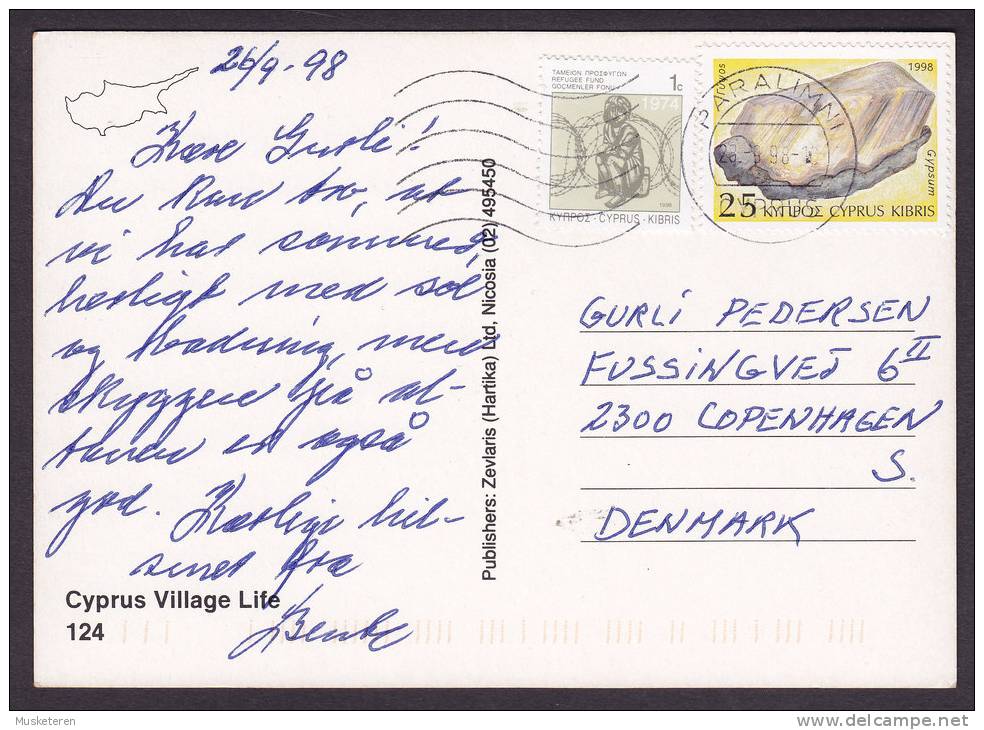 26/9-98
Kære Gurli!
Du kan tro, at
vi har sommer,
herligt med sol
og badning, men
skyggen på al-
tanen er også
god. Kærlige hil-
sner fra
Bente
Cyprus Village Life
124
Publishers: Zevlaris (Hartika) Ltd, Nicosia (02) 495450
ΤΑΜΕΙΟΝ ΠΡΟΣΦΥΓΩΝ
REFUGEE FUND
GÖÇMENLER FONU
1c
1974
1998
ΚΥΠΡΟΣ - CYPRUS - KIBRIS
Γύψος
1998
Gypsum
25 ΚΥΠΡΟΣ CYPRUS KIBRIS
PARALIMNI
CYPRUS
GURLi PEDERSEN
FUSSiNGVEJ 6 II
2300 COPENHAGEN
S.
DENMARK
Musketeren
delcampe.net